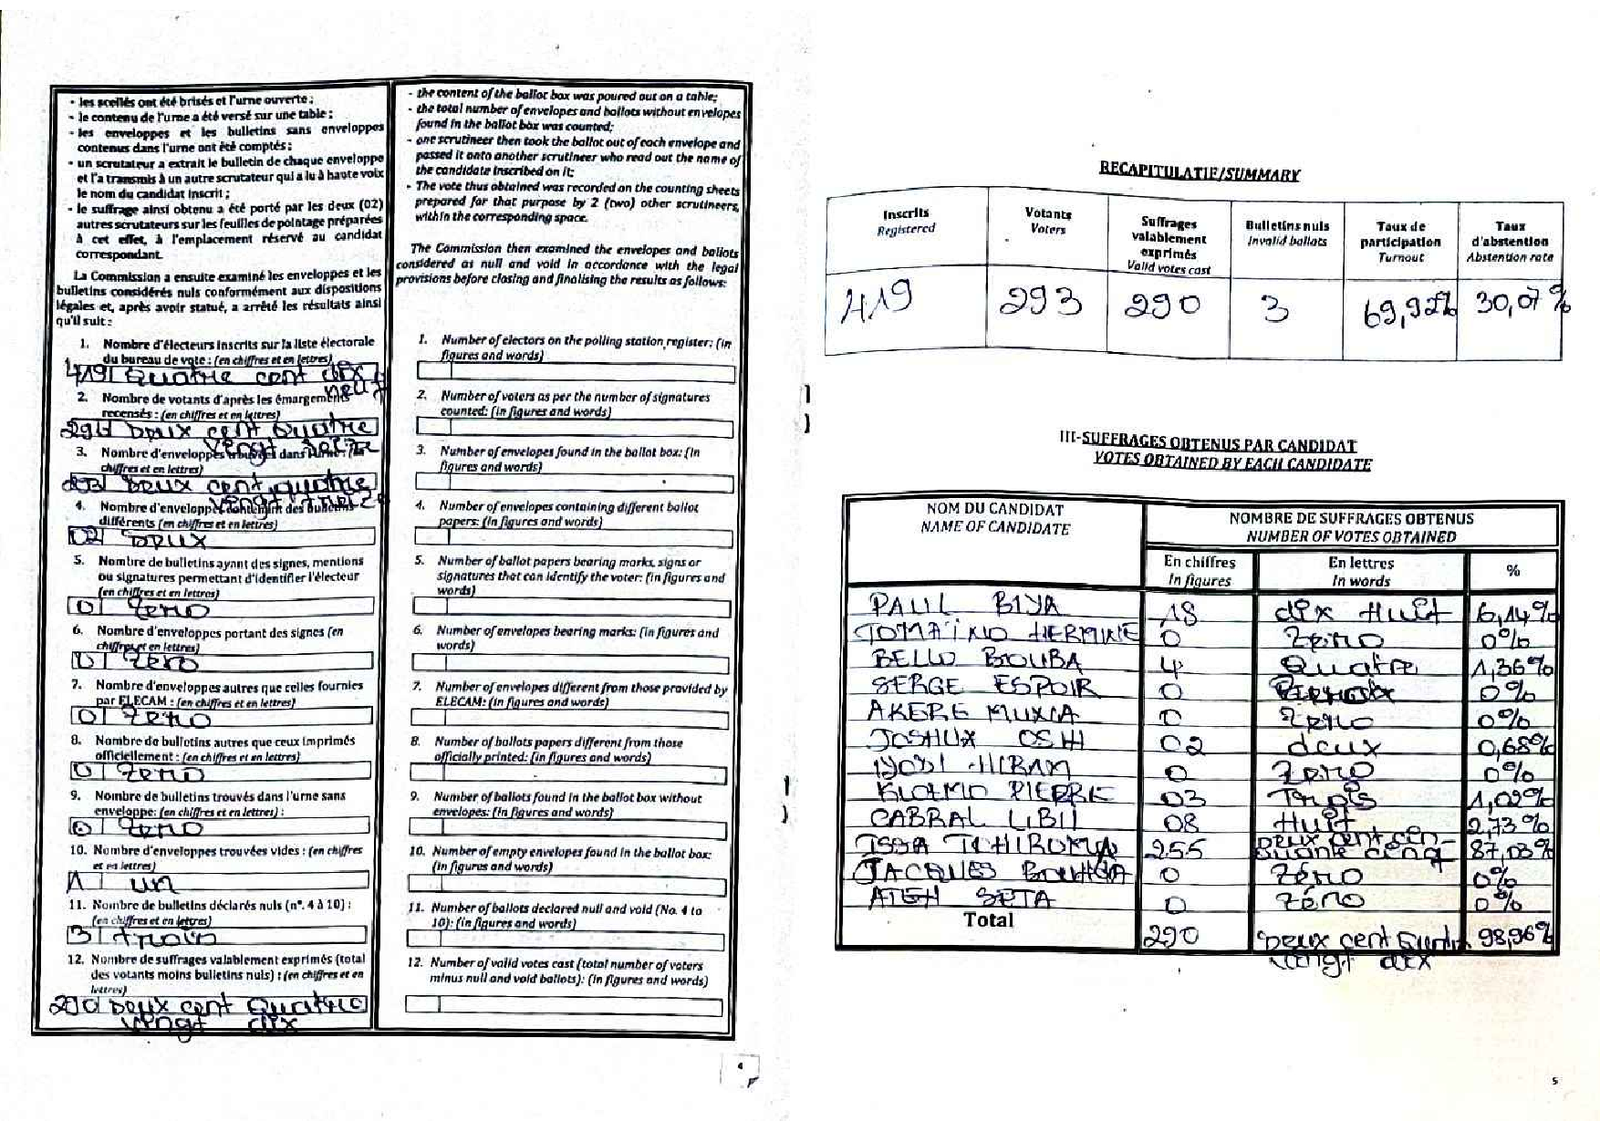 - les scellés ont été brisés et l'urne ouverte ;
- le contenu de l'urne a été versé sur une table ;
- les enveloppes et les bulletins sans enveloppes
contenus dans l'urne ont été comptés ;
- un scrutateur a extrait le bulletin de chaque enveloppe
et l'a transmis à un autre scrutateur qui a lu à haute voix
le nom du candidat inscrit ;
- le suffrage ainsi obtenu a été porté par les deux (02)
autres scrutateurs sur les feuilles de pointage préparées
à cet effet, à l'emplacement réservé au candidat
correspondant.
La Commission a ensuite examiné les enveloppes et les
bulletins considérés nuls conformément aux dispositions
légales et, après avoir statué, a arrêté les résultats ainsi
qu'il suit :
1. Nombre d'électeurs inscrits sur la liste électorale
du bureau de vote : (en chiffres et en lettres)
419 Quatre cent dix
neuf
2. Nombre de votants d'après les émargements
recensés : (en chiffres et en lettres)
deux cent quatre
vingt
3. Nombre d'enveloppes trouvées dans l'urne : (en
chiffres et en lettres)
293 Deux cent quatre
vingt treize
4. Nombre d'enveloppes contenant des bulletins
différents (en chiffres et en lettres)
02 Deux
5. Nombre de bulletins ayant des signes, mentions
ou signatures permettant d'identifier l'électeur
(en chiffres et en lettres)
0 Zero
6. Nombre d'enveloppes portant des signes (en
chiffres et en lettres)
0 Zero
7. Nombre d'enveloppes autres que celles fournies
par ELECAM : (en chiffres et en lettres)
0 Zero
8. Nombre de bulletins autres que ceux imprimés
officiellement : (en chiffres et en lettres)
0 Zero
9. Nombre de bulletins trouvés dans l'urne sans
enveloppe: (en chiffres et en lettres) :
0 Zero
10. Nombre d'enveloppes trouvées vides : (en chiffres
et en lettres)
1 un
11. Nombre de bulletins déclarés nuls (n°. 4 à 10) :
(en chiffres et en lettres)
3 trois
12. Nombre de suffrages valablement exprimés (total
des votants moins bulletins nuls) : (en chiffres et en
lettres)
290 Deux cent Quatre
vingt dix
- the content of the ballot box was poured out on a table;
- the total number of envelopes and ballots without envelopes
found in the ballot box was counted;
- one scrutineer then took the ballot out of each envelope and
passed it onto another scrutineer who read out the name of
the candidate inscribed on it;
- The vote thus obtained was recorded on the counting sheets
prepared for that purpose by 2 (two) other scrutineers,
within the corresponding space.
The Commission then examined the envelopes and ballots
considered as null and void in accordance with the legal
provisions before closing and finalising the results as follows:
1. Number of electors on the polling station register: (in
figures and words)
2. Number of voters as per the number of signatures
counted: (in figures and words)
3. Number of envelopes found in the ballot box: (in
figures and words)
4. Number of envelopes containing different ballot
papers: (in figures and words)
5. Number of ballot papers bearing marks, signs or
signatures that can identify the voter: (in figures and
words)
6. Number of envelopes bearing marks: (in figures and
words)
7. Number of envelopes different from those provided by
ELECAM: (in figures and words)
8. Number of ballots papers different from those
officially printed: (in figures and words)
9. Number of ballots found in the ballot box without
envelopes: (in figures and words)
10. Number of empty envelopes found in the ballot box:
(in figures and words)
11. Number of ballots declared null and void (No. 4 to
10): (in figures and words)
12. Number of valid votes cast (total number of voters
minus null and void ballots): (in figures and words)
4
RECAPITULATIF/SUMMARY
Inscrits Registered Votants Voters Suffrages valablement exprimés Valid votes cast Bulletins nuls Invalid ballots Taux de participation Turnout Taux d'abstention Abstention rate
419 293 290 3 69,92% 30,07%
III-SUFFRAGES OBTENUS PAR CANDIDAT
VOTES OBTAINED BY EACH CANDIDATE
NOM DU CANDIDAT NOMBRE DE SUFFRAGES OBTENUS
NAME OF CANDIDATE NUMBER OF VOTES OBTAINED
En chiffres En lettres %
In figures In words
PAUL BIYA 18 dix Huit 6,14%
TOMAINO HERMINE 0 Zero 0%
BELLO BOUBA 4 Quatre 1,36%
SERGE ESPOIR 0 0%
AKERE MUNA 0 Zero 0%
JOSHUA OSIH 02 deux 0,68%
IYODI HIRAM 0 Zero 0%
KWEMO PIERRE 03 Trois 1,02%
CABRAL LIBII 08 Huit 2,73%
ISSA TCHIROMA 255 Deux cent cin-
quante cinq 87,03%
JACQUES BOUHGA 0 Zéro 0%
ATEH SETA 0 Zéro 0%
Total 290 Deux cent Quatre 98,96%
vingt dix
5